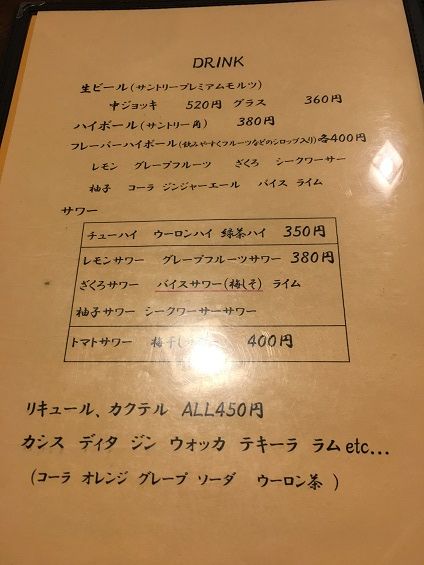 DRINK
生ビール(サントリープレミアムモルツ)
中ジョッキ 520円 グラス 360円
ハイボール(サントリー角) 380円
フレーバーハイボール(飲みやすくフルーツなどのシロップ入り)各400円
レモン グレープフルーツ ざくろ シークワーサー
柚子 コーラ ジンジャーエール バイス ライム
サワー
チューハイ ウーロンハイ 緑茶ハイ 350円
レモンサワー グレープフルーツサワー 380円
ざくろサワー バイスサワー(梅しそ) ライム
柚子サワー シークワーサーサワー
トマトサワー 梅干し 400円
リキュール、カクテル ALL450円
カシス ディタ ジン ウォッカ テキーラ ラム etc...
(コーラ オレンジ グレープ ソーダ ウーロン茶 )